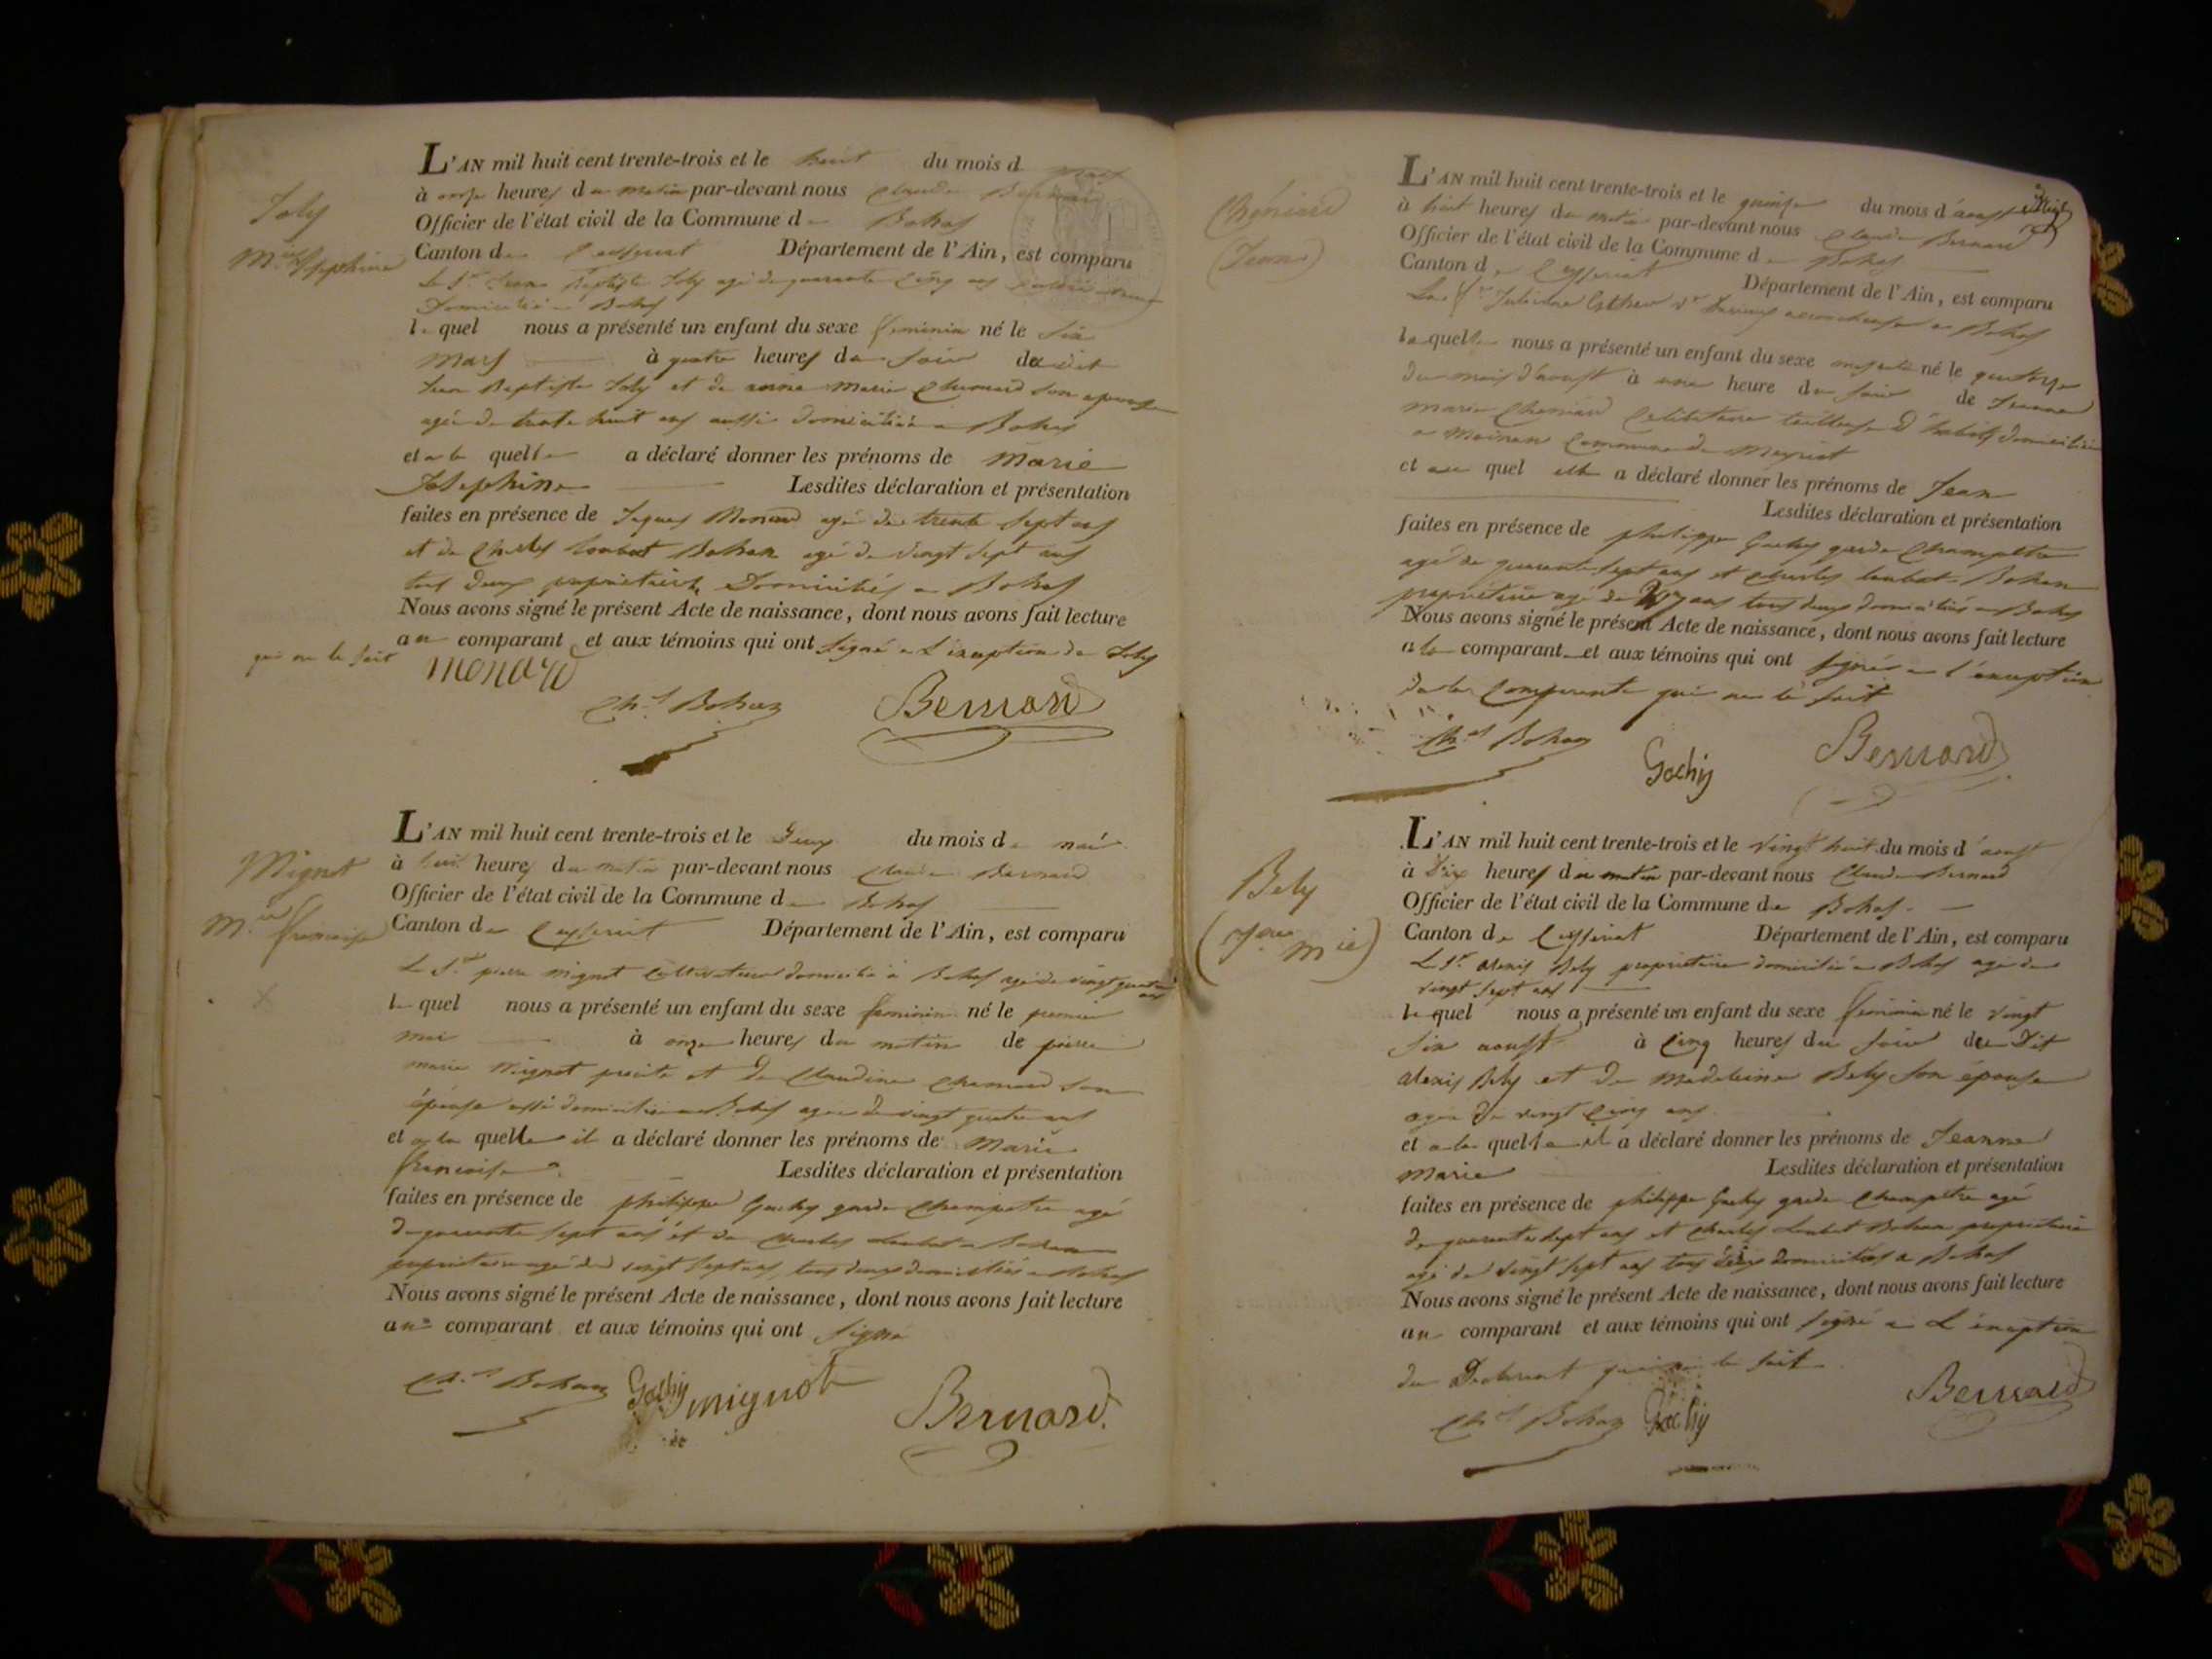 Joly
Mie Josephine
L'AN mil huit cent trente-trois et le huit du mois d mars
à onze heures du matin par-devant nous Claude Bernard
Officier de l'état civil de la Commune de Bohas
Canton de Ceyseriat Département de l'Ain, est comparu
Le Sr Jean Baptiste Joly agé de quarante cinq ans
Domicilié a Bohas
lequel nous a présenté un enfant du sexe feminin né le six
mars à quatre heures du soir du dit
Jean Baptiste Joly et de anne Marie Chenard son epouse
agée de trente huit ans aussi domiciliée a Bohas
et a la quelle a déclaré donner les prénoms de Marie
Josephine Lesdites déclaration et présentation
faites en présence de Jaques Monard agé de trente sept ans
et de Charles Loubat Bohan agé de vingt sept ans
tous deux proprietaires Domiciliés a Bohas
Nous avons signé le présent Acte de naissance, dont nous avons fait lecture
au comparant et aux témoins qui ont signé a L'exeption de Joly
qui ne le sait
Monard
Chs Bohan
Bernard
Mignot
Mie francoise
L'AN mil huit cent trente-trois et le Deux du mois de mai
à huit heures du matin par-devant nous Claude Bernard
Officier de l'état civil de la Commune de Bohas
Canton de Ceyseriat Département de l'Ain, est comparu
Le Sr pierre mignot cultivateur domicilié à Bohas agé de vingt quatre ans
lequel nous a présenté un enfant du sexe feminin né le premier
mai à onze heures du matin de pierre
marie mignot et de Claudine Chenard son
épouse aussi domiciliée a Bohas agée de vingt quatre ans
et a la quelle il a déclaré donner les prénoms de Marie
francoise Lesdites déclaration et présentation
faites en présence de philippe Gachy garde Champetre agé
de quarante sept ans et de Charles Loubat Bohan
proprietaire agé de vingt sept ans, tous deux domiciliés a Bohas
Nous avons signé le présent Acte de naissance, dont nous avons fait lecture
au comparant et aux témoins qui ont signé
Chs Bohan Gachy mignot
Bernard
Chenard
(Jean)
L'AN mil huit cent trente-trois et le quinze du mois d'aoust
à huit heures du matin par-devant nous Claude Bernard
Officier de l'état civil de la Commune de Bohas
Canton de Ceyseriat Département de l'Ain, est comparu
La Julienne Esther accoucheuse a Bohas
laquelle nous a présenté un enfant du sexe masculin né le quatorze
du mois d'aoust à une heure du soir de Jeanne
Marie Chenard Celibataire tailleuse d'habits domiciliée
a Moinans Commune de Meyriat
et au quel elle a déclaré donner les prénoms de Jean
Lesdites déclaration et présentation
faites en présence de philippe Gachy garde Champetre
agé de quarante sept ans et Charles Loubat Bohan
proprietaire agé de 27 ans tous deux domiciliés a Bohas
Nous avons signé le présent Acte de naissance, dont nous avons fait lecture
a la comparante et aux témoins qui ont signé a l'exeption
de la Comparante qui ne le sait
Chs Bohan
Gachy
Bernard
Bely
(Jnne Mie)
L'AN mil huit cent trente-trois et le vingt huit du mois d'aoust
à Dix heures du matin par-devant nous Claude Bernard
Officier de l'état civil de la Commune de Bohas
Canton de Ceyseriat Département de l'Ain, est comparu
Le Sr Alexis Bely proprietaire domicilié a Bohas agé de
vingt sept ans
lequel nous a présenté un enfant du sexe feminin né le vingt
six aoust à Cinq heures du soir du Dit
Alexis Bely et de Madeleine Bely son épouse
agée de vingt Cinq ans
et a la quelle il a déclaré donner les prénoms de Jeanne
Marie Lesdites déclaration et présentation
faites en présence de philippe Gachy garde Champetre agé
de quarante sept ans et Charles Loubat Bohan proprietaire
agé de vingt sept ans tous deux domiciliés a Bohas
Nous avons signé le présent Acte de naissance, dont nous avons fait lecture
au comparant et aux témoins qui ont signé a L'exeption
du Declarant qui ne le sait
Chs Bohan Gachy
Bernard